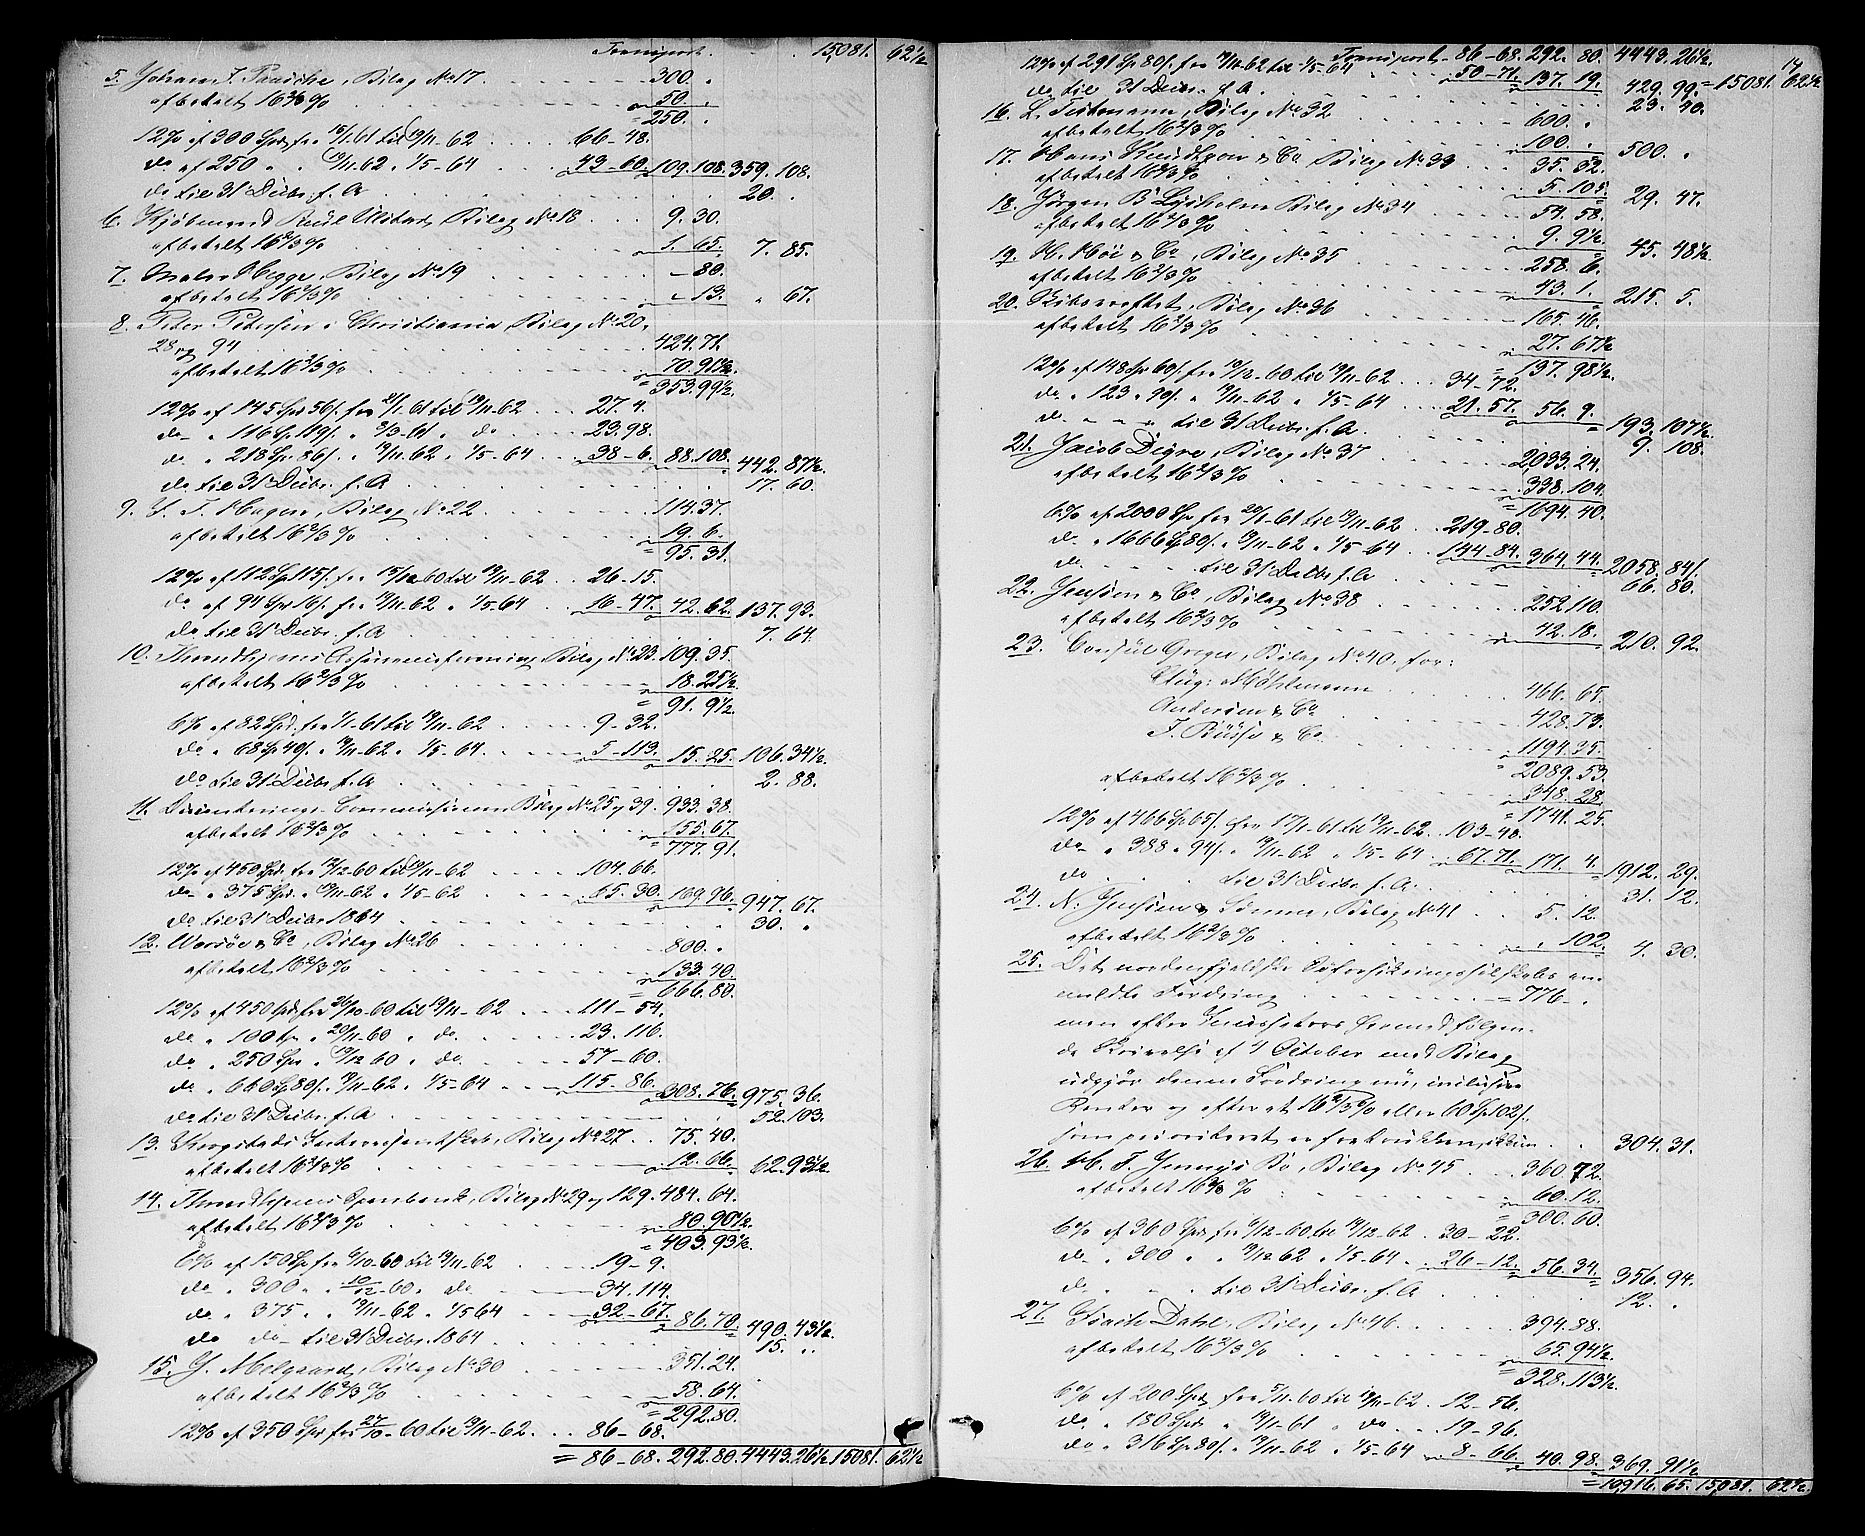 Transport. 15,081. 62½
5. Johan J. Paasche, Bilag No 17. 300. "
afbetalt 16 2/3 % 50. "
= 250. "
12% af 300 Spd. fra 15/1-61 til 19/11-62 66-48.
do af 250 " " 19/11-62 " 1/5-64 43-60. 109.108. 359.108.
do til 31 Decbr. f. A. 20. "
6. Kjøbmand Bilag No 18 9.30.
afbetalt 16 2/3 % 1.65. 7. 85.
7. Maler Hegge, Bilag No 19 "-80.
afbetalt 16 2/3 % "-13. " 67.
8. Peter Petersen i Christiania, Bilag No 20,
28 og 94 424.71.
afbetalt 16 2/3 % 70.91½.
= 353.99½.
12% af 145 Spd. 56 s. fra 21/1-61 til 19/11-62 27.4.
do " 116 Sp. 119 s. " 3/3-61 " do 23.98.
do " 218 Sp. 86 s. " 19/11-62 " 1/5-64 38-6. 88.108. 442.87½.
do til 31 Decbr. f. A. 17.60.
9. J. F. Hagen, Bilag No 22 114.37.
afbetalt 16 2/3 % 19.6.
= 95.31.
12% af 112 Sp. 115 s. fra 15/12-60 til 19/11-62 26-15.
do af 94 Spd. 16 s. fra 19/11-62 " 1/5-64 16-47. 42.62. 137.93.
do til 31 Decbr. f. A. 7.64.
10. Throndhjems Assuranceforening, Bilag No 23. 109.35.
afbetalt 16 2/3 % 18.25½.
= 91.9½.
6% af 82 Spd. fra 1/1-61 til 19/11-62 9-32.
do " 68 Sp. 40 s. " 19/11-62 " 1/5-64 5-113. 15.25. 106.34½.
do til 31 Decbr. f. A. 2.88.
11. Commissionen Bilag No 25 og 39. 933.38.
afbetalt 16 2/3 % 155.67.
= 777.91.
12% af 450 Spd. fra 19/12-60 til 19/11-62 104.66.
do " 375 Spd. " 19/11-62 " 1/5-62 65.30. 169.96. 947.67.
do til 31 Decbr. 1864 30. "
12. & Co, Bilag No 26 800. "
afbetalt 16 2/3 % 133.40.
= 666.80.
12% af 450 Spd. fra 26/10-60 til 19/11-62 111-54.
do " 100 Sp. " 20/11-60 " do 23.116.
do " 250 Sp. " 19/12-60 " do 57-60.
do " 660 Sp. 80 s. " 19/11-62 " 1/5-64 115-86. 308.76. 975.36.
do til 31 Decbr. f. A. 52.103.
13. Krogstads Interessentskab, Bilag No 27 75.40.
afbetalt 16 2/3 % 12.66. 62.93½
14. Throndhjems Sparebank, Bilag No 29 og 129. 484.64.
afbetalt 16 2/3 % 80.90½.
= 403.93½.
6% af 150 Sp. fra 6/10-60 til 19/11-62 19-9.
do " 300 " " 10/12-60 " do 34.114.
do " 375 " " 19/11-62 " 1/5 64 32-67. 86.70. 490.43½.
do do til 31 Decbr. 1864 15. "
15. J. Melgaard, Bilag No 30 351.24.
afbetalt 16 2/3 % 58.64.
= 292.80.
12% af 350 Spd. fra 27/10-60 til 19/11-62 86-68.
= 86-68. 292.80. 4443.26½. 15081. 62½
17
Transport 86-68. 292.80. 4443.26½. = 15081. 62½
12% af 291 Sp. 80 s. fra 19/11-62 til 1/5-64 50-71. 137.19. 429.99.
do til 31 Decbr. f. A. 23.40.
16. L. Teilmann, Bilag No 32 600. "
afbetalt 16 2/3 % 100. " 500. "
17. Hans Knudtzon & Co Bilag No 33 35.32.
afbetalt 16 2/3 % 5.105. 29.47.
18. Jørgen B Lysholm Bilag No 34 54.58.
afbetalt 16 2/3 % 9.9½. 45.48½.
19. H. Høe & Co, Bilag No 35 258.6.
afbetalt 16 2/3 % 43.1. 215.5.
20. Bilag No 36 165.46.
afbetalt 16 2/3 % 27.67½
= 137.98½.
12% af 148 Spd. 60 s. fra 19/12-60 til 19/11-62 34-72.
do " 123 " 90 s. " 19/11-62 " 1/5-64 21.57. 56.9. 193.107½.
do " " " til 31 Decbr. f. A. 9.108.
21. Jacob Digre, Bilag No 37 2033.24.
afbetalt 16 2/3 % 338.104.
= 1694.40.
6% af 2000 Spd. fra 20/1-61 til 19/11-62 219-80.
do " 1666 Sp. 80 s. " 19/11-62 " 1/5-64 144-84. 364.44. 2058.84.
do til 31 Decbr. f. A. 66.80.
22. Jenssen & Co, Bilag No 38 252.110.
afbetalt 16 2/3 % 42.18. 210.92.
23. Consul Greger, Bilag No 40, for:
Aug: Møhlmann 466.65.
Andersen & Co 428.73.
J. Busse & Co 1194.35.
= 2089.53.
afbetalt 16 2/3 % 348.28.
= 1741.25.
12% af 466 Sp. 65 s. fra 17/1-61 til 19/11-62 103-48.
do " 388 " 94 s. " 19/11-62 " 1/5-64 67.71. 171.4. 1912.29.
do til 31 Decbr. f. A. 31.12.
24. N. Jenssen & Sønner, Bilag No 41 5.12.
afbetalt 16 2/3 % ".102. 4.30.
25. Det nordenfjeldske Søforsikringsselskabs an-
meldte Fordring = 776-"
men efter Inkassators følgen-
de Skrivelse af 4 October med Bilag
udgjør denne Fordring nu, inclusive
Renter og efter at 16 2/3 % eller 60 Sp. 102 s.
som prioriteret er fratrukken, 304.31.
26. H. F. Bo, Bilag No 45 360.72.
afbetalt 16 2/3 % 60.12.
= 300.60.
6% af 360 Spd. fra 6/12-60 til 19/12-62 30-22.
do " 300 " " 19/12-62 " 1/5-64 26-12. 56.34. 356.94.
do " " til 31 Decbr. f. A. 12. "
27. Isach Dahl, Bilag No 46 394.88.
afbetalt 16 2/3 % 65.94½.
= 328.113½.
6% af 200 Spd. fra 5/11-60 til 19/11-62 12-56.
do " 180 Spd. " 19/1-61 " do 19-96.
do " 316 Sp. 80 s. " 19/11-62 " 1/5-64 8-66. 40.98. 369.91½
= 10,916.65. 15,081. 62½.